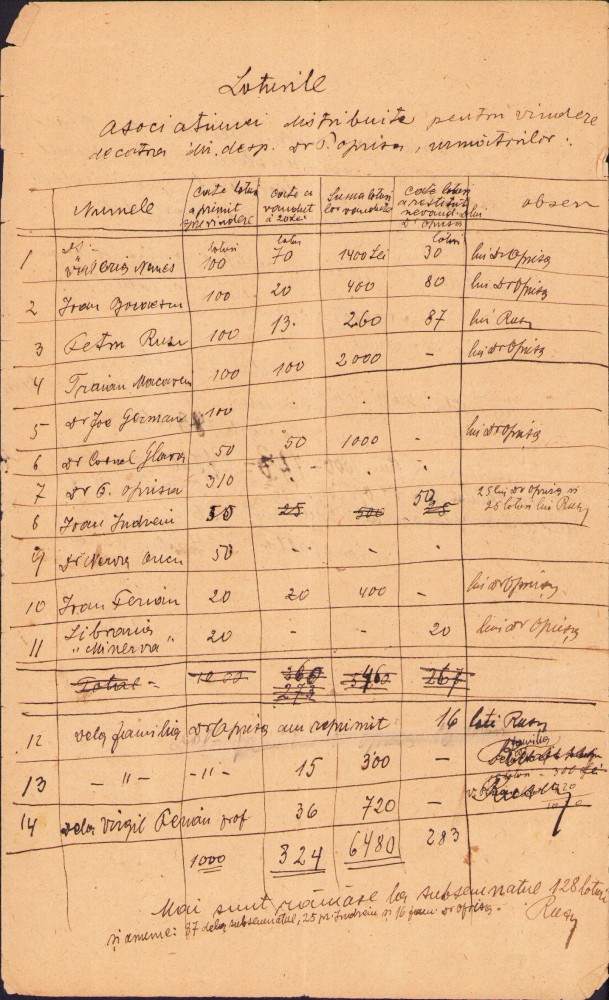 Loturile
Asociatiunei distribuite pentru vindere
decatra dl. desp. Dr P. Oprisa, urmatorilor:
Numele
cate loturi a primit spre vindere
cate a vandut à 20 Lei
Suma loturilor vandute
cate loturi a restituit nevandute lui Dr Oprisa
observ
1 Valeria Nemes loturi 100 loturi 70 1400 Lei loturi 30 lui Dr Oprisa
2 Ioan 100 20 400 80 lui Dr Oprisa
3 Petru Rusu 100 13. 260 87 lui Rusu
4 Traian Macaveiu 100 100 2000 - lui Dr Oprisa
5 Dr Ioe German 100 . . .
6 Dr Cornel Glava 50 50 1000 - lui Dr Oprisa
7 Dr P. Oprisa 310 - . .
8 Ioan Indreiu 50 25 500 50 25 25 lui Dr Oprisa si 25 loturi lui Rusu
9 Dr Nerva 50 - - .
10 Ioan Ferian 20 20 400 - lui Dr Oprisa
11 Libraria "Minerva" 20 - - 20 lui Dr Oprisa
Total - 360 273 5460 267
12 dela familia Dr Oprisa am reprimit 16 loturi Rusu
13 - " - - " - 15 300 -
14 dela Virgil Ferian prof 36 720 -
1000 324 6480 283
Mai sunt rămase la subsemnatul 128 loturi
si anume: 87 dela subsemnatul, 25 pr. Indreiu si 16 fam. Dr Oprisa.
Rusu